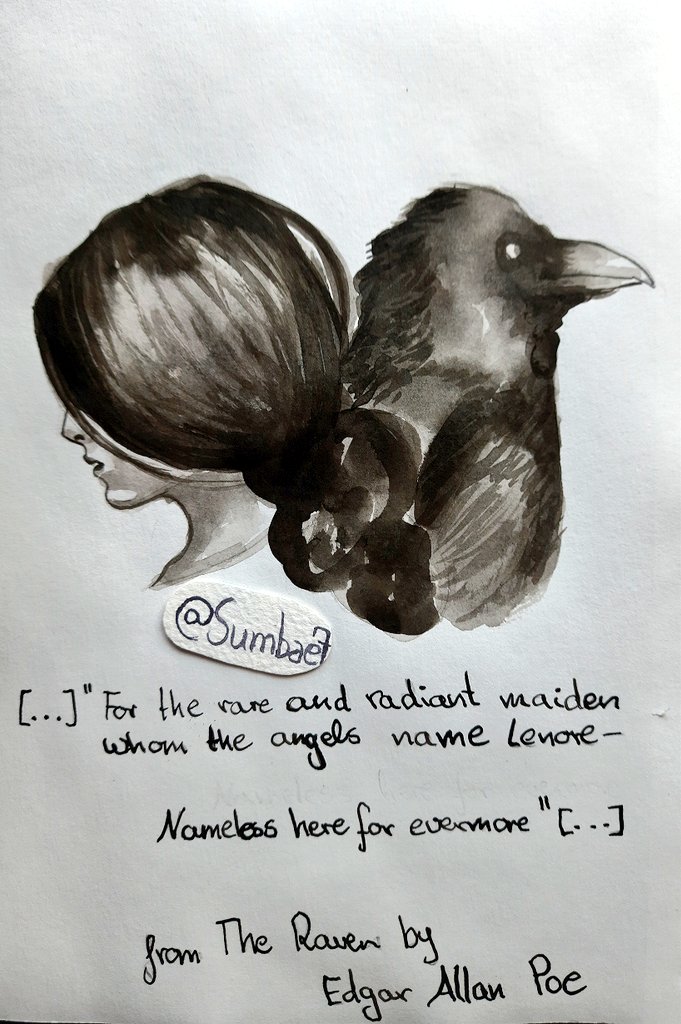 @Sumbae7
[...] "For the rare and radiant maiden
whom the angels name Lenore-
Nameless here for evermore" [...]
from The Raven by
Edgar Allan Poe